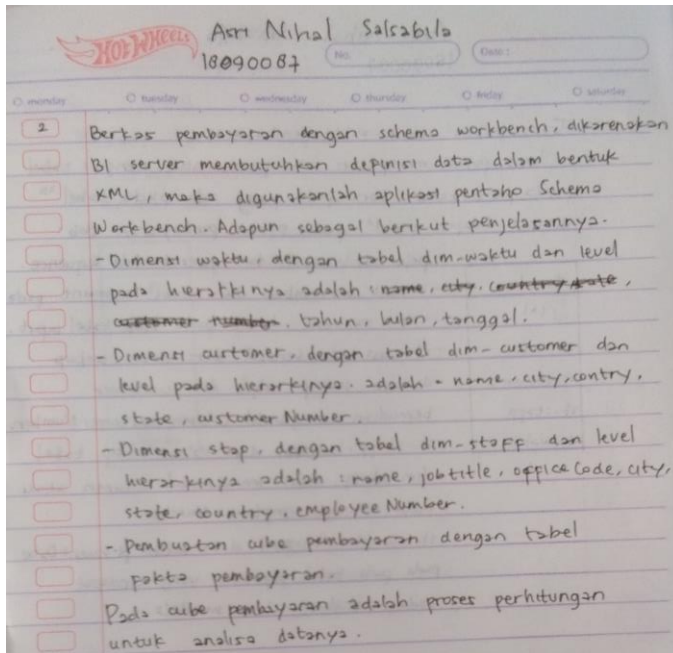 HOT WHEELS
Asri Nihal Salsabila
18090087
No.
Date :
monday tuesday wednesday thursday friday saturday
2 Berkas pembayaran dengan schema workbench, dikarenakan
BI server membutuhkan depinisi data dalam bentuk
XML, maka digunakanlah aplikasi pentaho Schema
Workbench. Adapun sebagai berikut penjelasannya.
- Dimensi waktu, dengan tabel dim-waktu dan level
pada hierarkinya adalah : name, city, country state,
customer number, tahun, bulan, tanggal.
- Dimensi customer, dengan tabel dim-customer dan
level pada hierarkinya. adalah = name, city, contry,
state, customer Number.
- Dimensi stap, dengan tabel dim-staff dan level
hierarkinya adalah : name, jobtitle, office Code, city,
state, country, employee Number.
- Pembuatan cube pembayaran dengan tabel
fakta pembayaran.
Pada cube pembayaran adalah proses perhitungan
untuk analisa datanya.